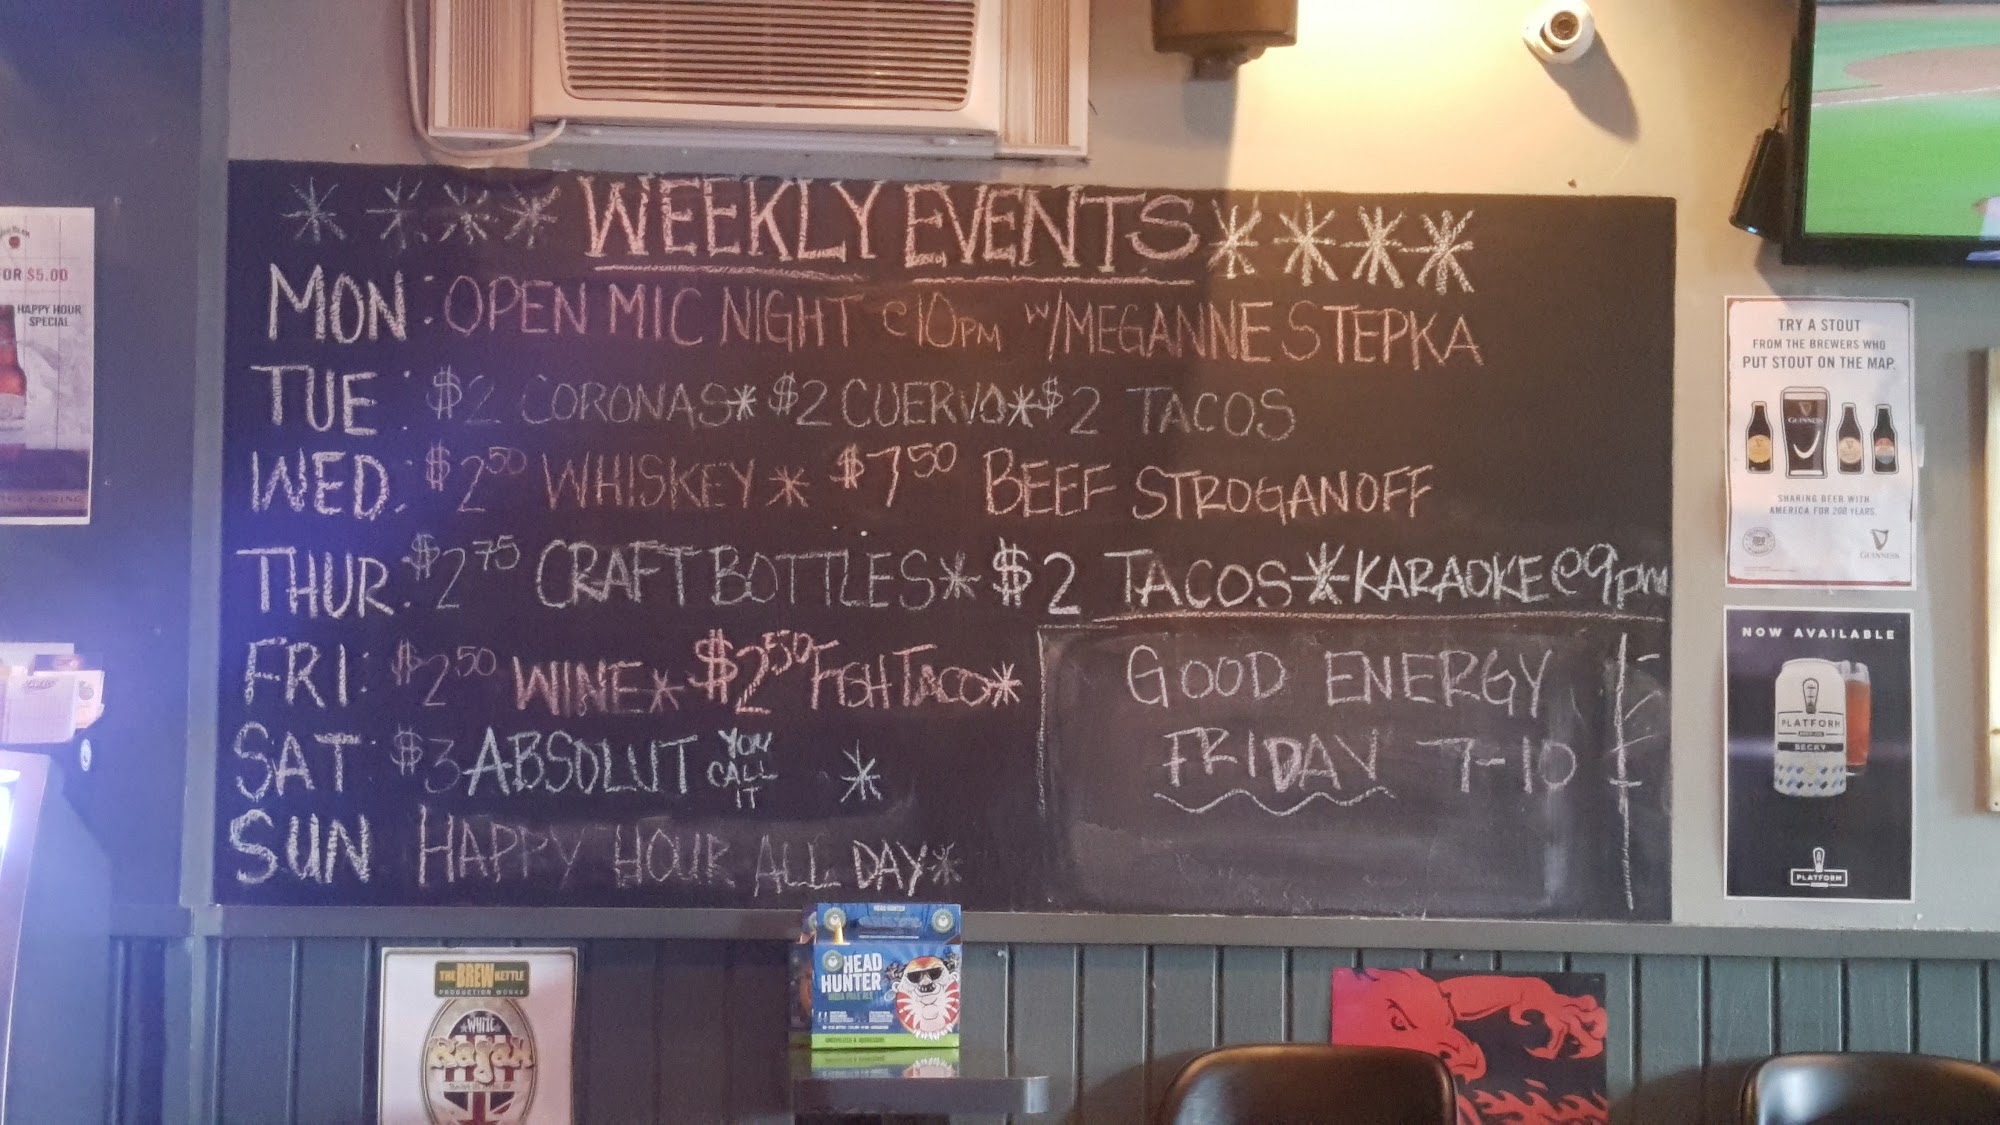 * * * * WEEKLY EVENTS * * * *
MON: OPEN MIC NIGHT @10PM W/MEGANNE STEPKA
TUE: $2 CORONAS * $2 CUERVO * $2 TACOS
WED: $2.50 WHISKEY * $7.50 BEEF STROGANOFF
THUR: $2.75 CRAFT BOTTLES * $2 TACOS * KARAOKE @ 9pm
FRI: $2.50 WINE * $2.50 FISH TACO *
SAT: $3 ABSOLUT YOU CALL IT *
SUN HAPPY HOUR ALL DAY *
GOOD ENERGY
FRIDAY 7-10
OR $5.00
HAPPY HOUR
SPECIAL
TRY A STOUT
FROM THE BREWERS WHO
PUT STOUT ON THE MAP.
GUINNESS
SHARING BEER WITH
AMERICA FOR 200 YEARS
GUINNESS
NOW AVAILABLE
PLATFORM
BECKY
PLATFORM
THE BREW KETTLE
PRODUCTION WORKS
WHITE
Rajah
HEAD HUNTER
HEAD
HUNTER
INDIA PALE ALE